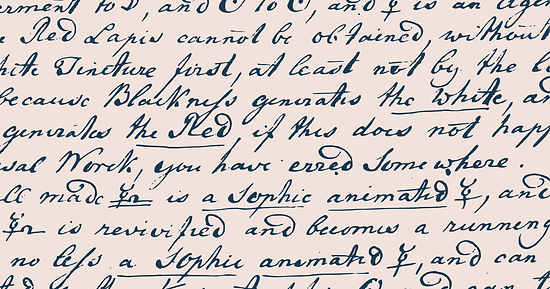 erment to D, and C to C, and ☿ is an Agen
e Red Lapis cannot be obtained, without
hite Tincture first, at least not by the
because Blackness generates the white, an
generates the Red, if this does not happ
sal Worck, you have erred Somewhere.
ll made is a Sophic animated ☿, and
is revivified and becomes a running
no less a Sophic animated ☿, and can